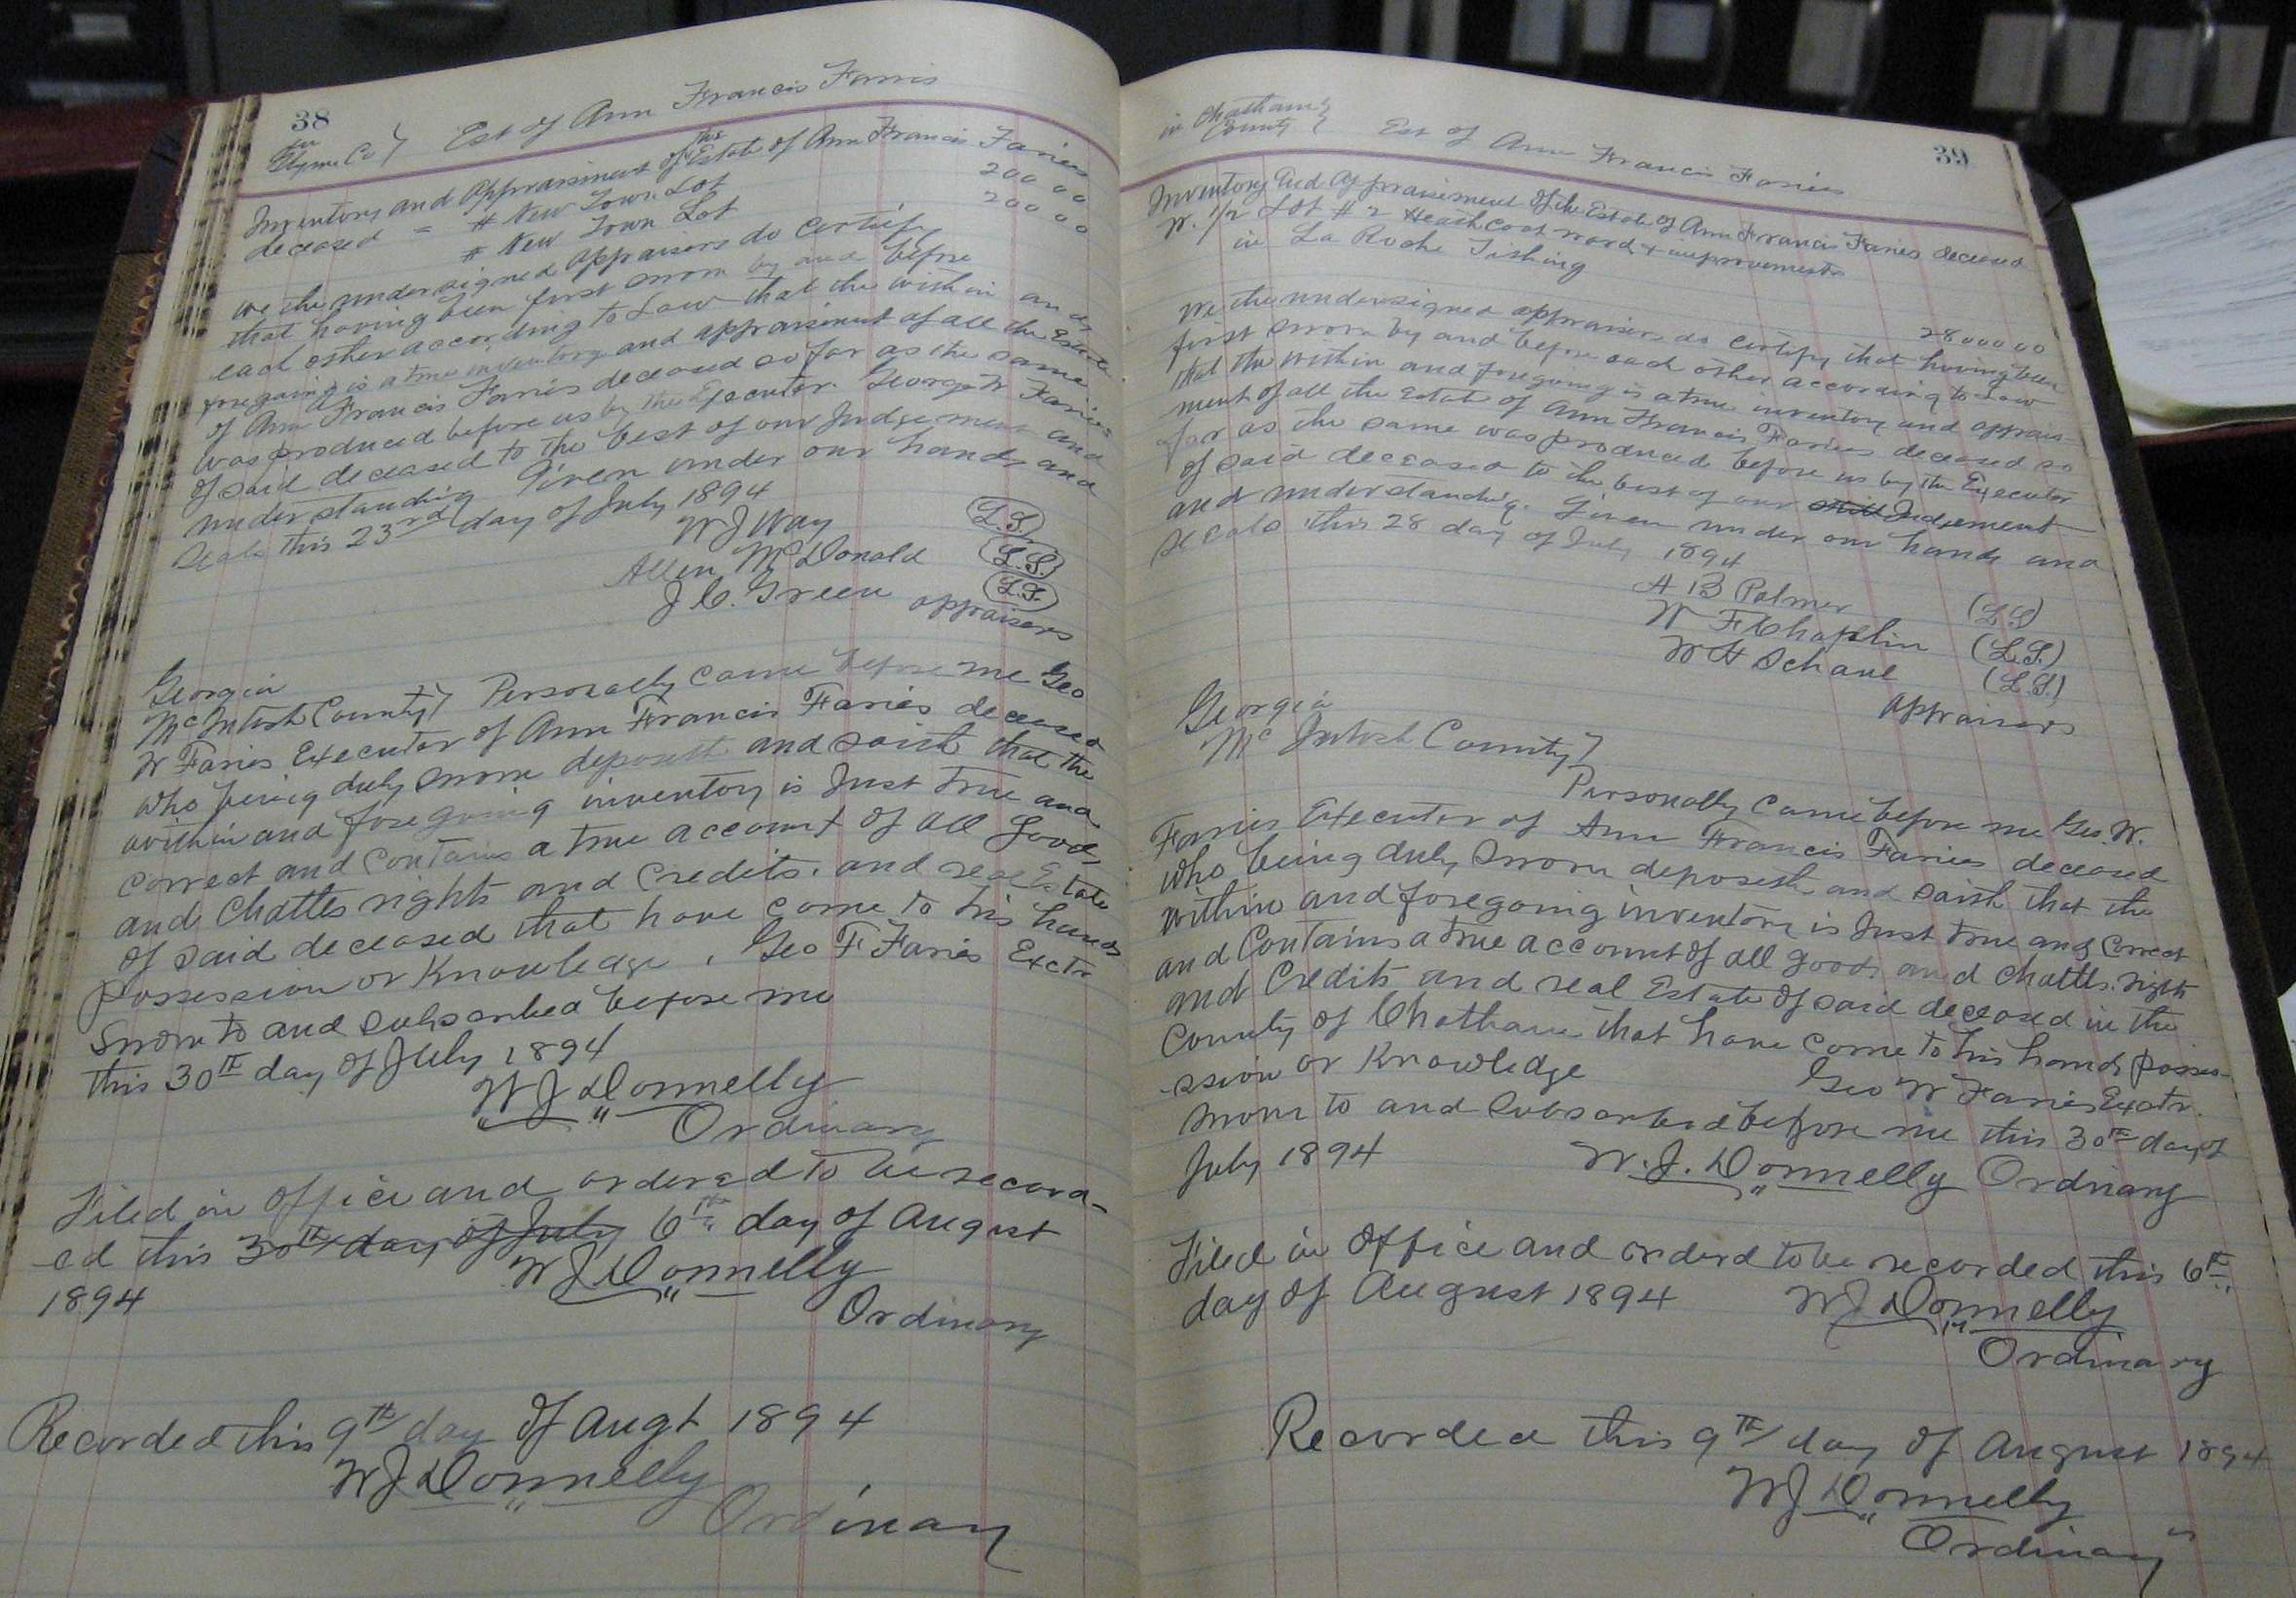 38
in
Glynn Co } Est of Ann Francis Farris
Inventory and Appraisment of the Estate of Ann Francis Faries
deceased = # New Town Lot 200 00
# New Town Lot 200 0 0
we the undersigned appraisers do certify
that having been first sworn by and before
each other according to Law that the within and
foregoing is a true inventory and appraisment of all the Estate
of Ann Francis Faries deceased so far as the same
was produced before us by the Executor George W Faries
of said deceased to the best of our Judgement and
understanding Given under our hands and
Seals this 23rd day of July 1894
W J Way (L.S)
Allen McDonald (L.S.)
J C. Green (L.S.)
appraisers
Georgia
McIntosh County } Personally came before me Geo
W Faries Executor of Ann Francis Faries deceased
who being duly sworn deposeth and saith that the
within and foregoing inventory is Just true and
correct and contains a true account of all Goods
and Chattles rights and Credits. and real Estate
of said deceased that have come to his hands
possession or Knowledge. Geo F Faries Exctr
Sworn to and subscribed before me
this 30th day of July 1894
W J Donnelly
Ordinary
Filed in office and ordered to be record-
ed this 30th day of July 6th day of August
1894 W J Donnelly
Ordinary
Recorded this 9th day of Augt 1894
W J Donnelly
Ordinary
in Chatham }
County } Est of Ann Francis Faries
39
Inventory and Appraisement of the Estate of Ann Francis Faries deceased
W. 1/2 Lot # 2 Heathcoat ward & improvements
in La Roche Tithing 2800 00
We the undersigned appraisers do certify that having been
first sworn by and before each other according to Law
that the within and foregoing is a true inventory and apprais-
ment of all the Estate of Ann Francis Faries deceased so
far as the same was produced before us by the Executor
of said deceased to the best of our Judgement
and understanding. Given under our hands and
Seals this 28 day of July 1894
A B Palmer (L.S)
W F Chaplin (L.S.)
W H Schaul (L.S.)
appraisers
Georgia
McIntosh County }
Personally came before me Geo. W.
Faries Executor of Ann Francis Faries deceased
who being duly Sworn deposeth and saith that the
within and foregoing inventory is Just true and correct
and Contains a true account of all goods and chattles. right
and Credits and real Estate of said deceased in the
County of Chatham that have come to his hands posses-
ssion or Knowledge Geo W Faries Exctr.
sworn to and Subscribed before me this 30th day of
July 1894 W. J. Donnelly Ordinary
Filed in office and orderd to be recorded this 6th
day of August 1894 W J Donnelly
Ordinary
Recorded this 9th day of August 1894
W J Donnelly
Ordinary